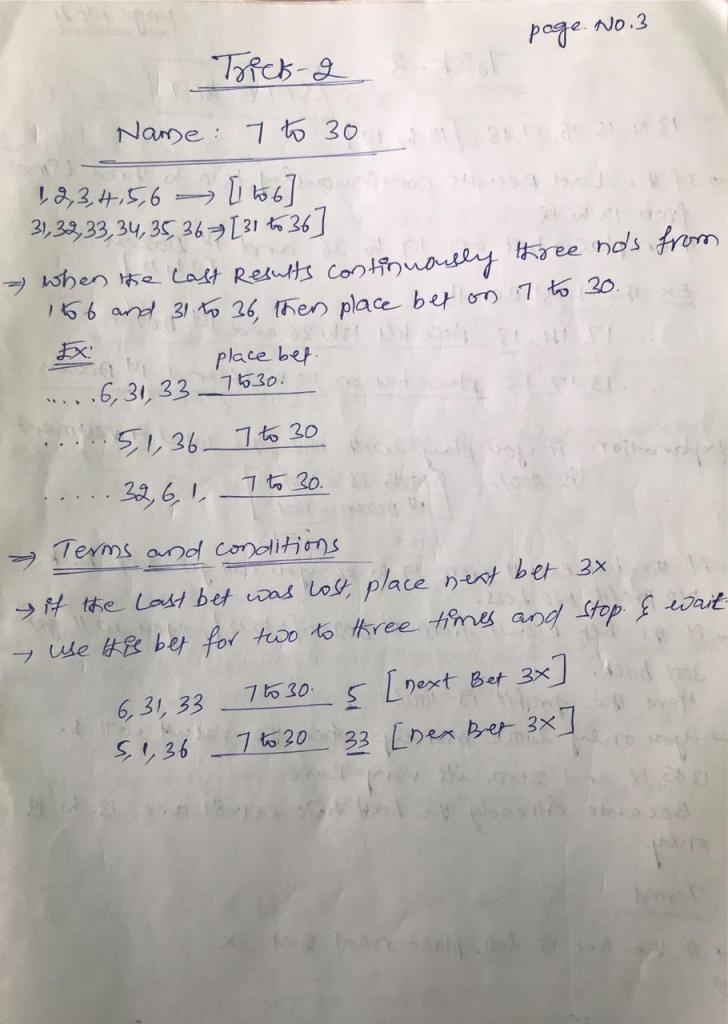 page No.3
Trick-2
Name: 7 to 30
1,2,3,4,5,6 → [1 to 6]
31,32,33,34,35,36 → [31 to 36]
⇒ when the Last Results continuously three no's from
1 to 6 and 31 to 36, then place bet on 7 to 30.
Ex: place bet.
.....6, 31, 33 7 to 30.
.....5, 1, 36 7 to 30
.....32, 6, 1, 7 to 30.
⇒ Terms and conditions
→ if the Last bet was lost, place next bet 3x
→ use this bet for two to three times and stop & wait
6, 31, 33 7 to 30. 5 [next Bet 3x]
5, 1, 36 7 to 30 33 [nex Bet 3x]